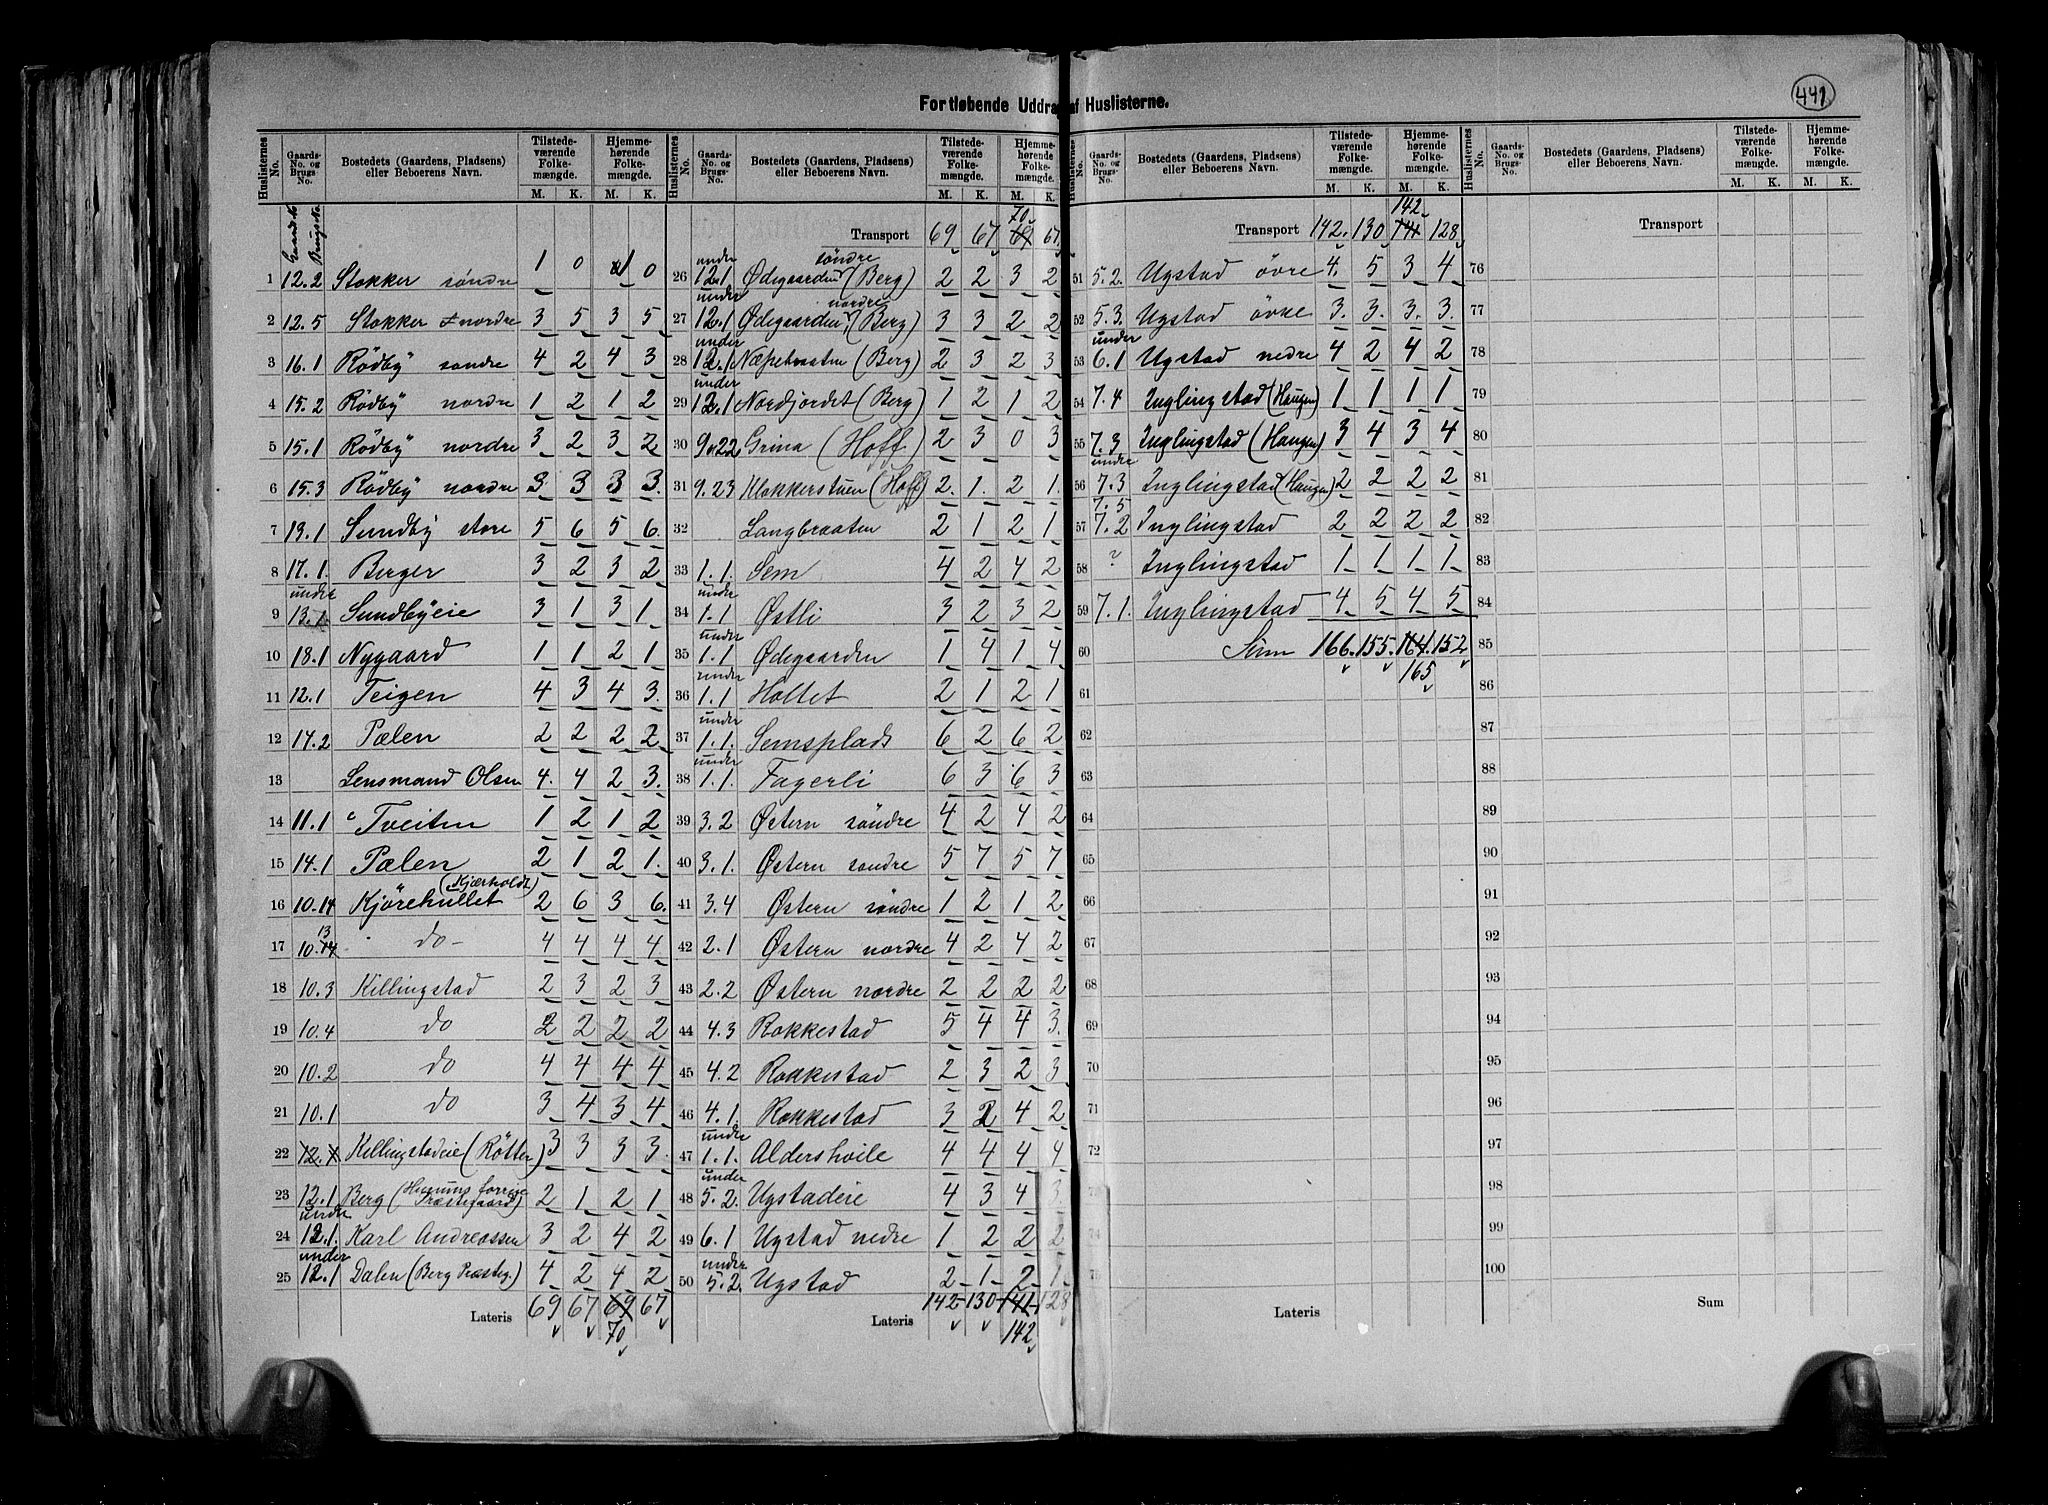 Fortløbende Uddrag af Huslisterne.
441
Huslisternes No. | Gaards-No. og Brugs-No. | Bostedets (Gaardens, Pladsens) eller Beboerens Navn. | Tilstedeværende Folkemængde. M. K. | Hjemmehørende Folkemængde. M. K.
Gaards No Brugs No.
1 12.2 Stokker søndre 1 0 1 0
2 12.5 Stokker nordre 3 5 3 5
3 16.1 Rödby søndre 4 2 4 3
4 15.2 Rödby nordre 1 2 1 2
5 15.1 Rödby nordre 3 2 3 2
6 15.3 Rödby nordre 3 3 3 3
7 13.1 Sundby store 5 6 5 6
8 17.1 Berger 3 2 3 2
9 under 13.1 Sundbyeie 3 1 3 1
10 18.1 Nygaard 1 1 2 1
11 12.1 Teigen 4 3 4 3
12 14.2 Pælen 2 2 2 2
13 Lensmand Olsen 4 4 2 3
14 11.1 Tveiten 1 2 1 2
15 14.1 Pælen 2 1 2 1
16 10.14 Kjörehullet (Kjærholdt) 2 6 3 6
17 10.13 do- 4 4 4 4
18 10.3 Killingstad 2 3 2 3
19 10.4 do 2 2 2 2
20 10.2 do 4 4 4 4
21 10.1 do 3 4 3 4
22 Killingstadeie (Røtter) 3 3 3 3
23 12.1 Berg (Hurums forrige Præstegaard) 2 1 2 1
24 under 12.1 Karl Andreassen 3 2 4 2
25 under 12.1 Dalen (Berg Præsteg.) 4 2 4 2
Lateris 69 67 69 67
70
Huslisternes No. | Gaards-No. og Brugs-No. | Bostedets (Gaardens, Pladsens) eller Beboerens Navn. | Tilstedeværende Folkemængde. M. K. | Hjemmehørende Folkemængde. M. K.
70
Transport 69 67 69 67
26 under 12.1 Ødegaarden søndre (Berg) 2 2 3 2
27 under 12.1 Ødegaarden nordre (Berg) 3 3 2 2
28 under 12.1 Næpebraaten (Berg) 2 3 2 3
29 under 12.1 Nordjordet (Berg) 1 2 1 2
30 9.22 Grina (Hoff) 2 3 0 3
31 9.23 Klokkerstuen (Hoff) 2 1 2 1
32 Langbraaten 2 1 2 1
33 1.1. Sem 4 2 4 2
34 under 1.1 Østli 3 2 3 2
35 under 1.1 Ødegaarden 1 4 1 4
36 under 1.1 Holtet 2 1 2 1
37 under 1.1. Semsplads 6 2 6 2
38 under 1.1. Fagerli 6 3 6 3
39 3.2 Østern søndre 4 2 4 2
40 3.1. Østern søndre 5 7 5 7
41 3.4 Østern søndre 1 2 1 2
42 2.1 Østern nordre 4 2 4 2
43 2.2 Østern nordre 2 2 2 2
44 4.3 Rokkestad 5 4 4 3
45 4.2 Rokkestad 2 3 2 3
46 4.1. Rokkestad 3 2 4 2
47 under 1.1. Aldershvile 4 4 4 4
48 under 5.2. Ugstadeie 4 3 4 3
49 6.1 Ugstad nedre 1 2 2 2
50 under 5.2. Ugstad 2 1 2 1
Lateris 142 130 141 128
142
Huslisternes No. | Gaards-No. og Brugs-No. | Bostedets (Gaardens, Pladsens) eller Beboerens Navn. | Tilstedeværende Folkemængde. M. K. | Hjemmehørende Folkemængde. M. K.
142
Transport 142 130 141 128
51 5.2. Ugstad övre 4 5 3 4
52 5.3. Ugstad övre 3 3 3 3
53 under 6.1 Ugstad nedre 4 2 4 2
54 7.4 Inglingstad (Haugen) 1 1 1 1
55 7.3 Inglingstad (Haugen) 3 4 3 4
56 under 7.3 Inglingstad (Haugen) 2 2 2 2
57 7.5 7.2 Inglingstad 2 2 2 2
58 ? Inglingstad 1 1 1 1
59 7.1. Inglingstad 4 5 4 5
60 Sum 166 155 164 152
61 165
62
63
64
65
66
67
68
69
70
71
72
73
74
75
Lateris
Huslisternes No. | Gaards-No. og Brugs-No. | Bostedets (Gaardens, Pladsens) eller Beboerens Navn. | Tilstedeværende Folkemængde. M. K. | Hjemmehørende Folkemængde. M. K.
Transport
76
77
78
79
80
81
82
83
84
85
86
87
88
89
90
91
92
93
94
95
96
97
98
99
100
Sum